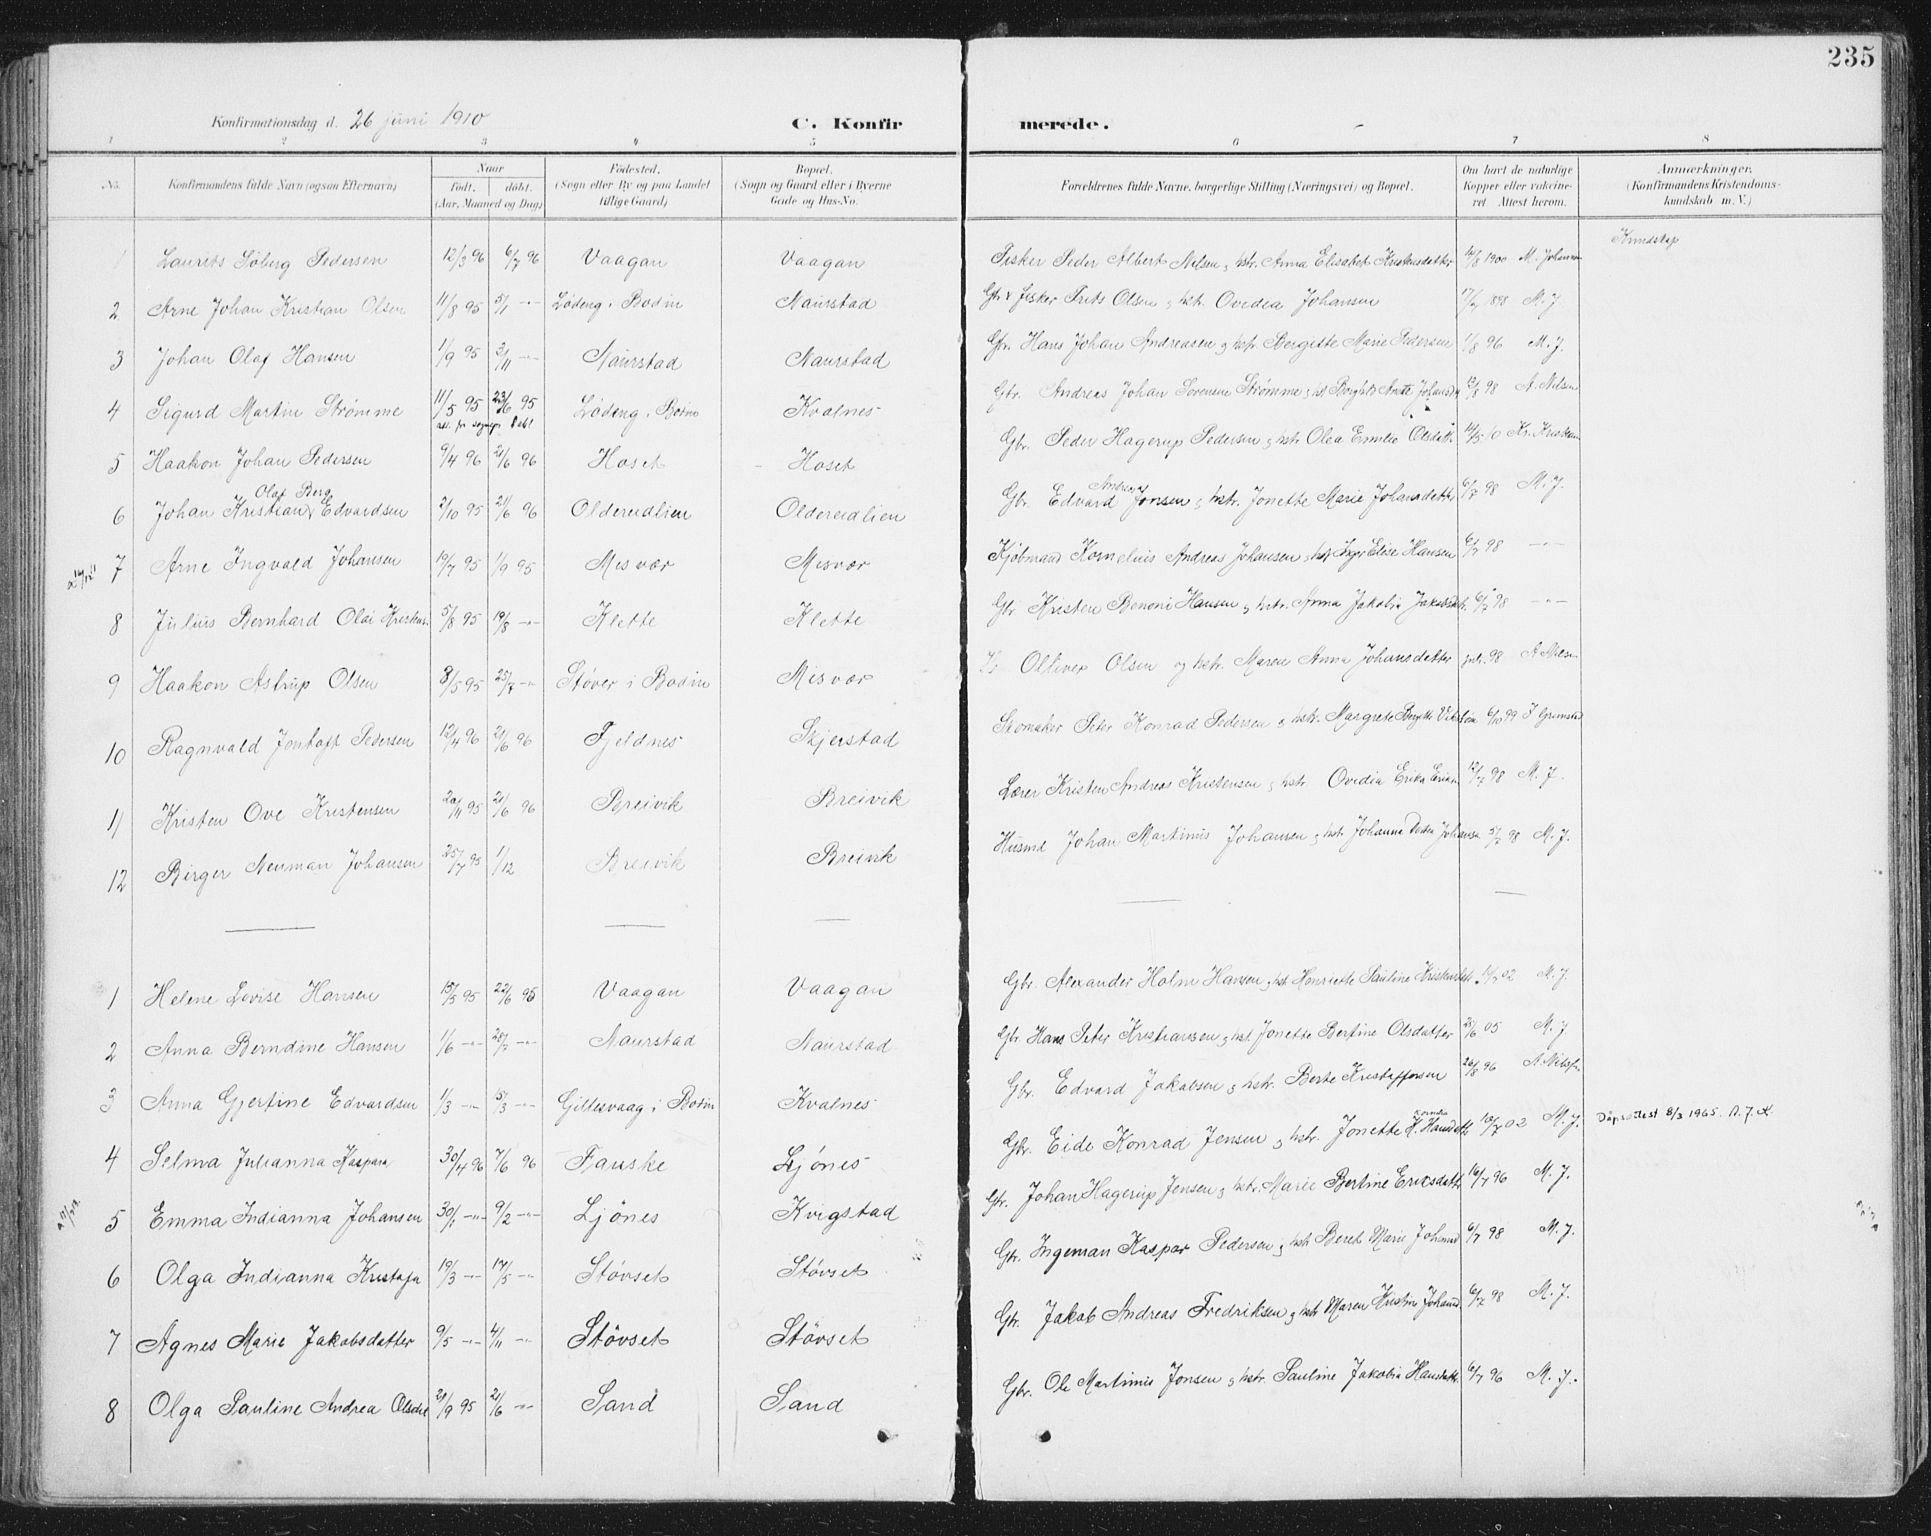 235
Konfirmationsdag d. 26 juni 1910
C. Konfirmerede.
1 2 3 4 5 6 7 8
No.
Konfirmandens fulde Navn (ogsaa Efternavn)
Naar
født. døbt.
(Aar, Maaned og Dag)
Fødested.
(Sogn eller By og paa Landet
tillige Gaard)
Bopæl.
(Sogn og Gaard eller i Byerne
Gade og Hus-No.
Forældrenes fulde Navne, borgerlige Stilling (Næringsvei) og Bopæl.
Om havt de naturlige
Kopper eller vakcine-
ret Attest herom.
Anmærkninger.
(Konfirmandens Kristendoms-
kundskab m. V.)
Kundskap
1 Laurits Søberg Pedersen 12/3 96 6/7 96 Vaagan Vaagan Fisker Peder Albert Nilsen & hstr. Anna Elisabet Kristensdatter 14/8 1900 M. Johannsen
2 Arne Johan Kristian Olsen 11/8 95 5/1 -"- Løding i Bodin Naurstad Gbr & fisker Frits Olsen & hstr. Ovedea Johansen 17/7 1898 M. J.
3 Johan Olaf Hansen 1/9 95 3/11 -"- Naurstad Naurstad Gbr. Hans Johan Andreasen & hstr. Bergitte Marie Pedersen 1/8 96 M. J.
4 Sigurd Martin Strømme 11/5 95 23/6 95 Løding i Bodin Kvalnes Gbr. Andreas Johan Sorensen Strømme & hst. 13/8 98 A. Nilsen
5 Haakon Johan Pedersen 9/4 96 21/6 96 Hoset Hoset Gbr. Peder Hagerup Pedersen & hstr Olea Emilie Olsdatt. 14/5 10 Kr. Kristensen
6 Johan Kristian Olaf Berg Edvardsen 2/10 95 21/6 96 Oldereidlien Oldereidlien Gbr. Edvard Andreas Jonsen & hstr. Jonette Marie Johansdatter 6/7 98 M. J.
7 Arne Ingvald Johansen 19/7 95 1/9 95 Misvær Misvær Kjøbmand Kornelius Andreas Johansen & hst Inger Elise Hansen 6/7 98 -"-
8 Julius Bernhard Olai Kristens. 5/8 95 19/8 -"- Klette Klette Gbr Kristen Benoni Hansen & hstr. Anna Jakobia Jakobsdt. 6/7 98 -"-
9 Haakon Astrup Olsen 8/5 95 25/7 -"- Støver i Bodin Misvær Olliver Olsen og hstr. Maren Anna Johansdatter juli 98 A Nilsen
10 Ragnvald Jentoft Pedersen 12/4 96 21/6 96 Fjeldnes Skjerstad Skomaker Peter Konrad Pedersen & hstr. Margrete Bergitte 6/10 99 J Grimstad
11 Kristen Ove Kristensen 20/11 95 21/6 96 Breivik Breivik Lærer Kristen Andreas Kristensen & hstr Ovedia Erika 12/7 98 M. J.
12 Birger Neuman Johansen 25/7 95 1/12 Breivik Breivik Husmd Johan Martinus Johansen & hstr. Johanna Dorea Johansen 5/7 98 M. J.
1 Helene Lovise Hansen 15/5 95 22/6 95 Vaagan Vaagan Gbr. Alexander Holm Hansen & hst Henriette Pauline 02 M. J.
2 Anna Berndine Hansen 1/6 -"- 28/7 -"- Naurstad Naurstad Gbr. Hans Peter Kristiansen & hst. Jonette Bertine Olsdatter 25/6 05 M. J
3 Anna Gjertine Edvardsen 1/3 -"- 15/3 -"- Gillesvaag i Bodin Kvalnes Gbr. Edvard Jakobsen & hstr. Berte Kristoffersen 26/8 96
4 Selma Julianna Kaspara 30/4 96 7/6 96 Fauske Ljønes Gbr. Eide Konrad Jensen & hstr. Jonette K. Hansdatt. 10/7 02 M. J. Dåpsattest 8/3 1965.
5 Emma Indianna Johansen 30/1 -"- 9/2 -"- Ljønes Kvigstad Gbr. Johan Hagerup Jensen & hstr. Marie Bertine Ericsdatt. 16/7 96 M. J.
6 Olga Indianna Kristofa 19/3 -"- 17/5 -"- Støvset Støvset Gbr. Ingeman Kaspar Pedersen & hstr Beret Marie Johansd 6/7 98 M. J.
7 Agnes Marie Jakobsdatter 9/5 -"- 4/11 -"- Støvset Støvset Gbr. Jakob Andreas Fredriksen & hstr Maren Kristine Johansd. 6/7 98 M. J.
8 Olga Pauline Andrea Olsdt 21/9 95 21/6 -"- Sand Sand Gbr. Ole Martinus Jonsen & hstr. Pauline Jakobia Hansdatt. 6/7 96 M. J.